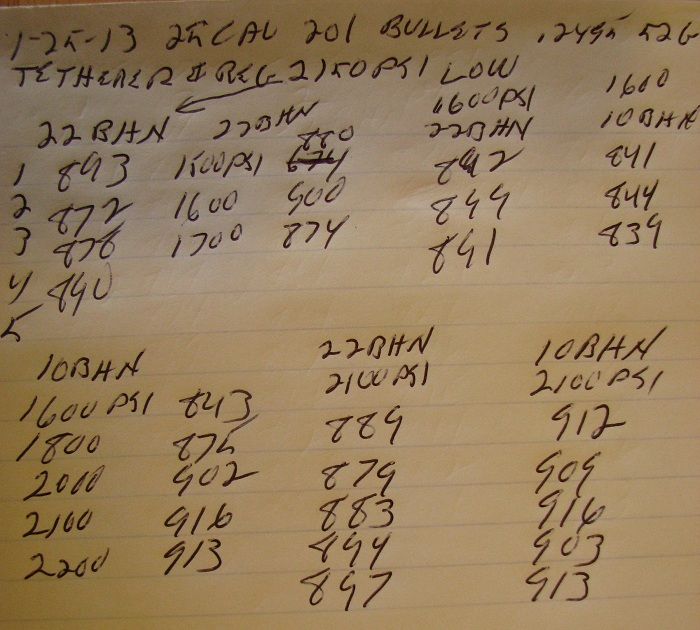 1-25-13 25 CAL 201 BULLETS .2495 52G
TETHERED REG 2150 PSI LOW
1600 PSI 1600
22 BHN 22 BHN 22 BHN 10 BHN
1 893 1500 PSI 880 842 841
2 872 1600 900 899 844
3 878 1700 874 891 839
4 890
5
10 BHN 22 BHN 10 BHN
2100 PSI 2100 PSI
1600 PSI 843 889 912
1800 875 879 909
2000 902 883 916
2100 916 894 903
2200 913 897 913